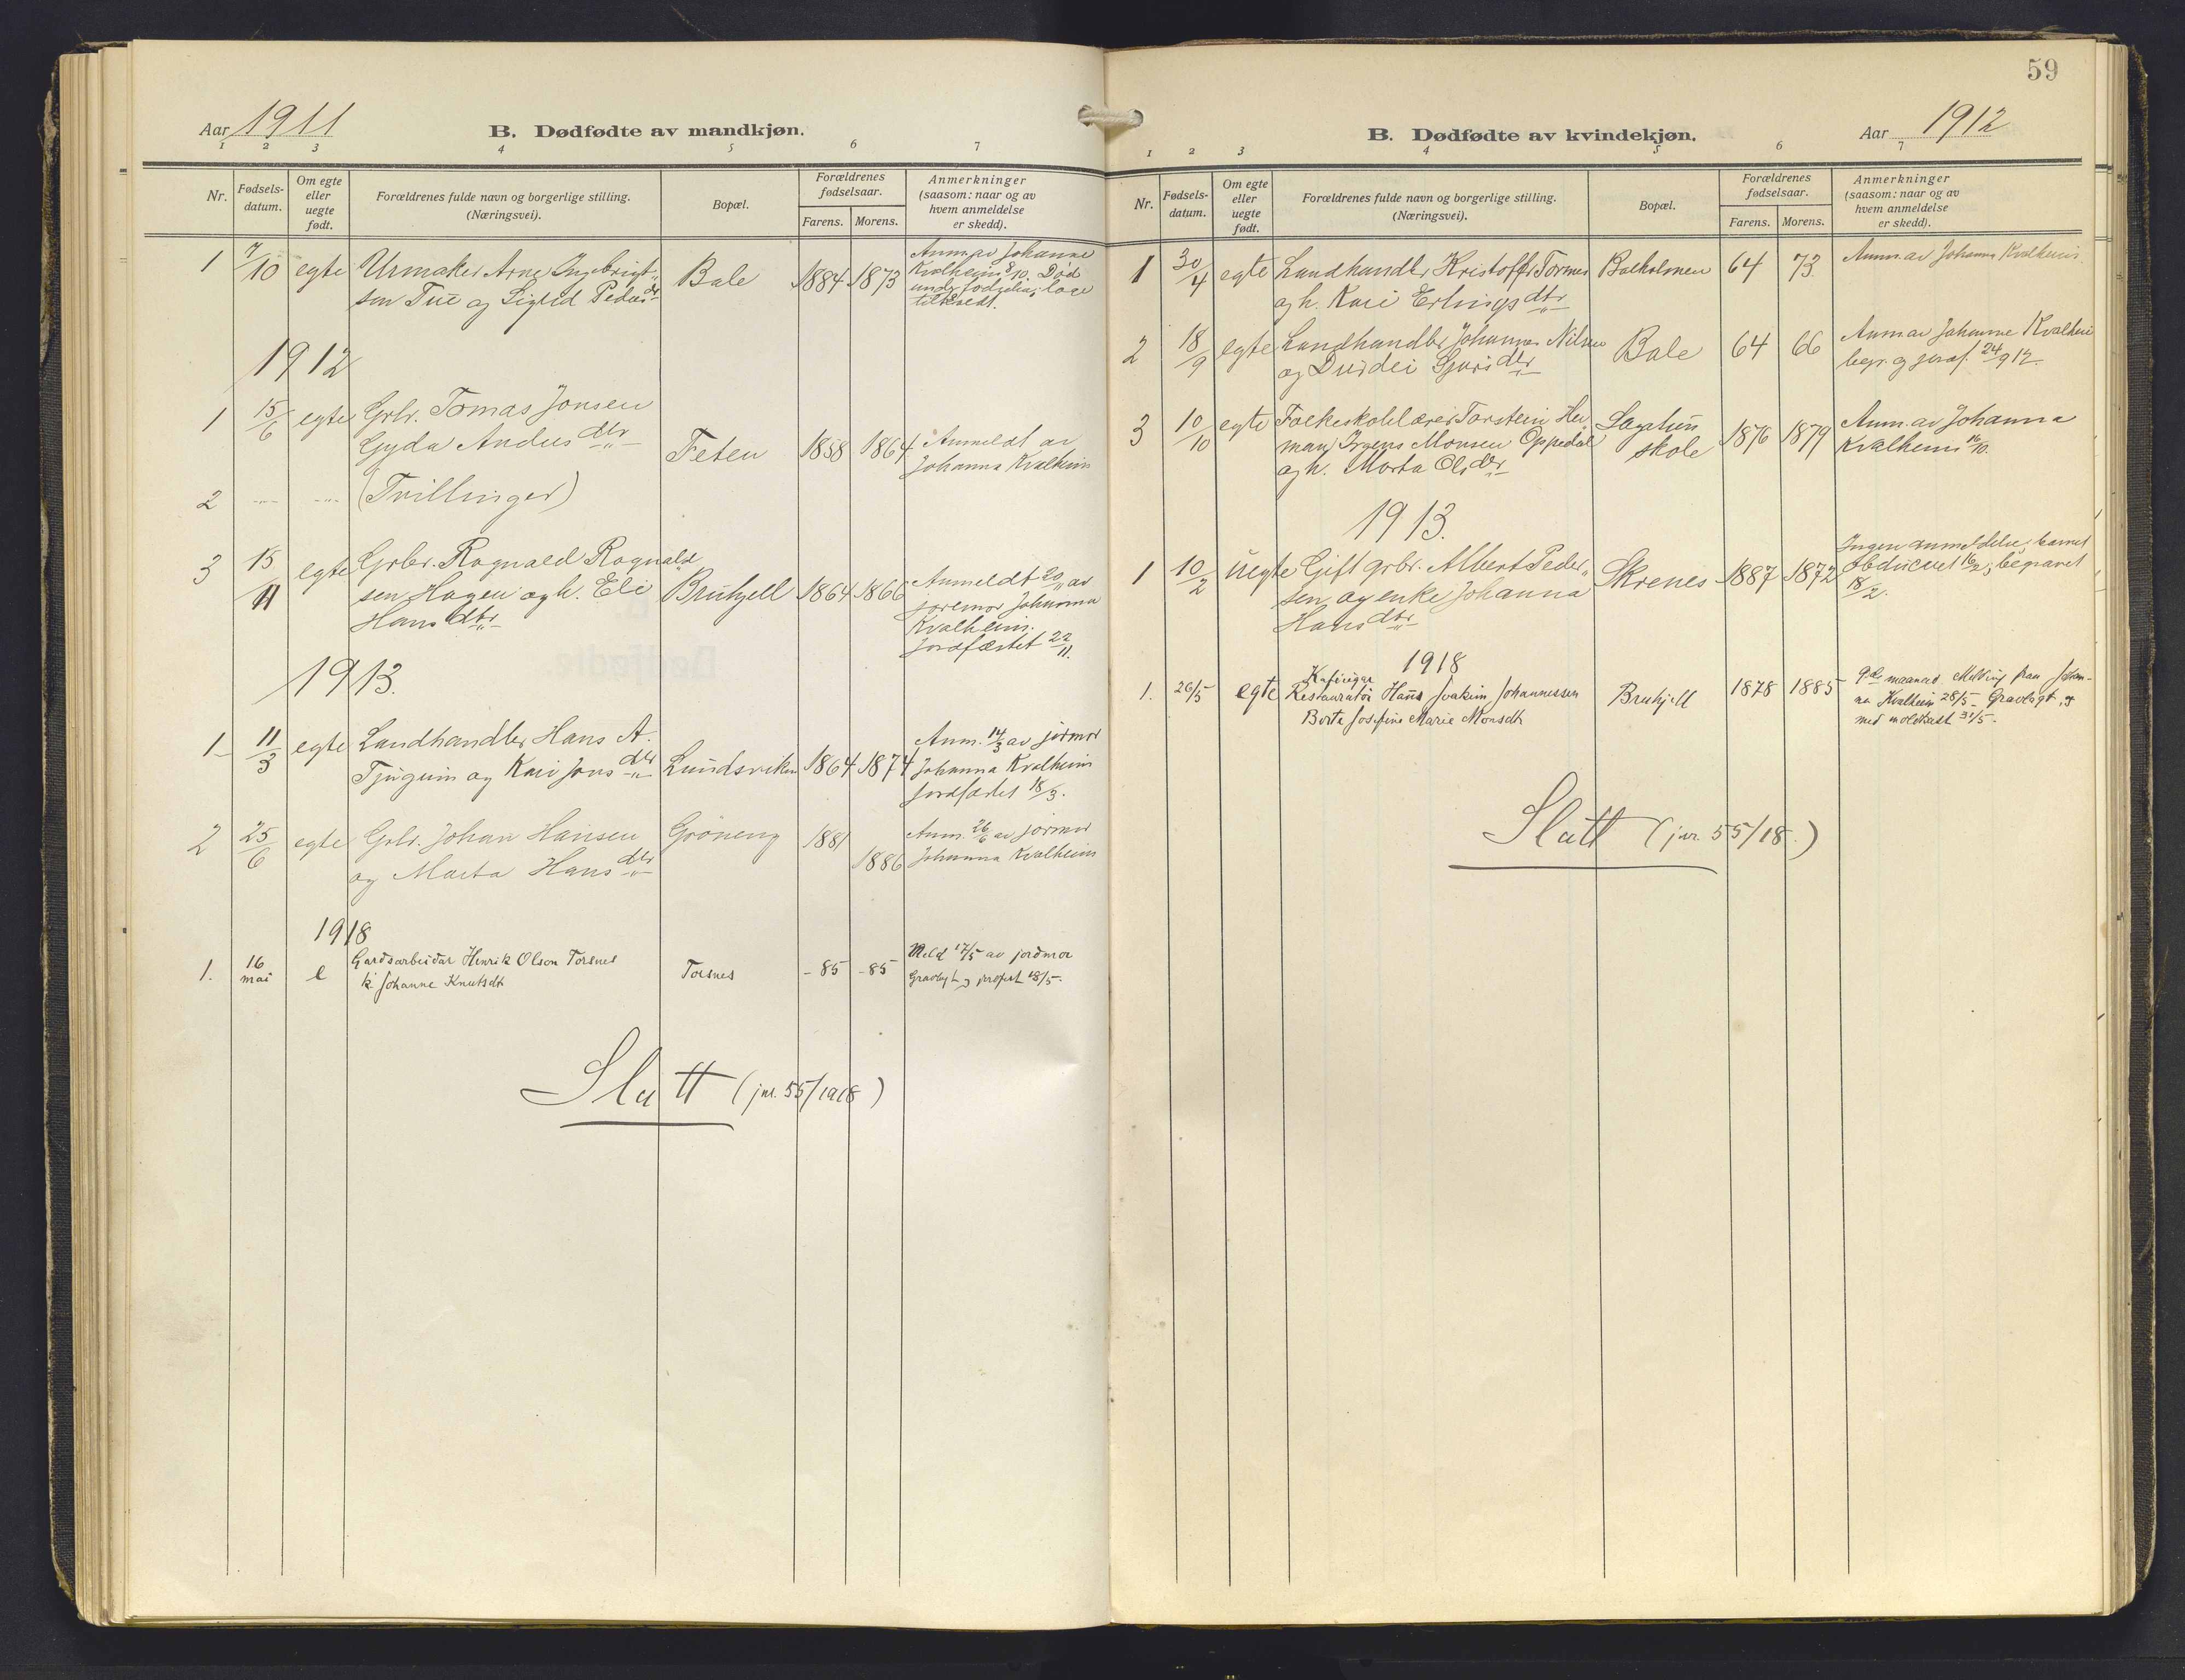 Aar 1911
B. Dødfødte av mandkjøn.
1 2 3 4 5 6 7
Nr.
Fødsels-
datum.
Om egte
eller
uegte
født.
Forældrenes fulde navn og borgerlige stilling.
(Næringsvei).
Bopæl.
Forældrenes
fødselsaar.
Farens. Morens.
Anmerkninger
(saasom: naar og av
hvem anmeldelse
er skedd).
1 7/10 egte Urmaker Arne Ingebrigt„ Bale 1884 1873 Anm. av Johanne
sen Tue og Sigrid Peders dr Kvalheim 8/10. Død
under fødselen;
1912
1 15/6 egte Grbr. Tomas Jonsen
Gyda Anders dtr Feten 1858 1864 Anmeldt av
Johanna Kvalheim
2 -„- -„- (Tvillinger)
3 15/11 egte Grbr. Ragnvald Ragnvald
sen Hagen og h. Eli Bruhjell 1864 1866 Anmeldt 20/11 av
Hans dtr jormor Johanna
Kvalheim.
Jordfæstet 22/11.
1913.
1 11/3 egte Landhandler Hans A. Anm. 14/3 av jormor
Tjugum og Kari Jons dtr Lundsviken 1864 1874 Johanna Kvalheim
Jordfæstet 18/3.
2 25/6 egte Grbr. Johan Hansen Grøneng 1881 Anm. 26/6 av jormor
og Marta Hans dtr 1886 Johanna Kvalheim
1918
1. 16 mai e Gardsarbeidar Henrik Olson Torsnes Torsnes -85 -85 Meld 17/5 av jordmor
k. Johanne Knutsdt Gravlagt og jordfest 18/5.
Slutt (jnr. 55/1918)
59
B. Dødfødte av kvindekjøn.
Aar 1912
1 2 3 4 5 6 7
Nr.
Fødsels-
datum.
Om egte
eller
uegte
født.
Forældrenes fulde navn og borgerlige stilling.
(Næringsvei).
Bopæl.
Forældrenes
fødselsaar.
Farens. Morens.
Anmerkninger
(saasom: naar og av
hvem anmeldelse
er skedd).
1 30/4 egte Landhandler Kristoffer Tornes Balholmen 64 73. Anm. av Johanna Kvalheim.
og h. Kari Erlings dtr
2 18/9 egte Landhandler Johannes Nilsen Bale 64 66 Anm av Johanne Kvalheim
og Durdei Sjurs dtr begr. og jordf. 24/9 12.
3 10/10 egte Folkeskolelærer Torstein Her„ Sagatun 1876 1879 Anm. av Johanna
man Irgens Monsen Oppedal skole Kvalheim 16/10.
og h. Marta Ols dtr
1913.
1 10/2 uegte Gift grbr. Albert Peder„ Skrenes 1887 1872 Ingen anmeldelse; barnet
sen og enke Johanna obduceret 16/2; begravet
Hans dtr 18/2.
1918
Kafeeigar
1. 26/5 egte Restauratør Hans Joakim Johannessen Bruhjell 1878 1885 9de maaned. Melding fraa Johan-
Borte Josefine Marie Monsdt na Kvalheim 28/5. Gravlagt og
med moldkast 31/5.
Slutt (jnr. 55/18.)